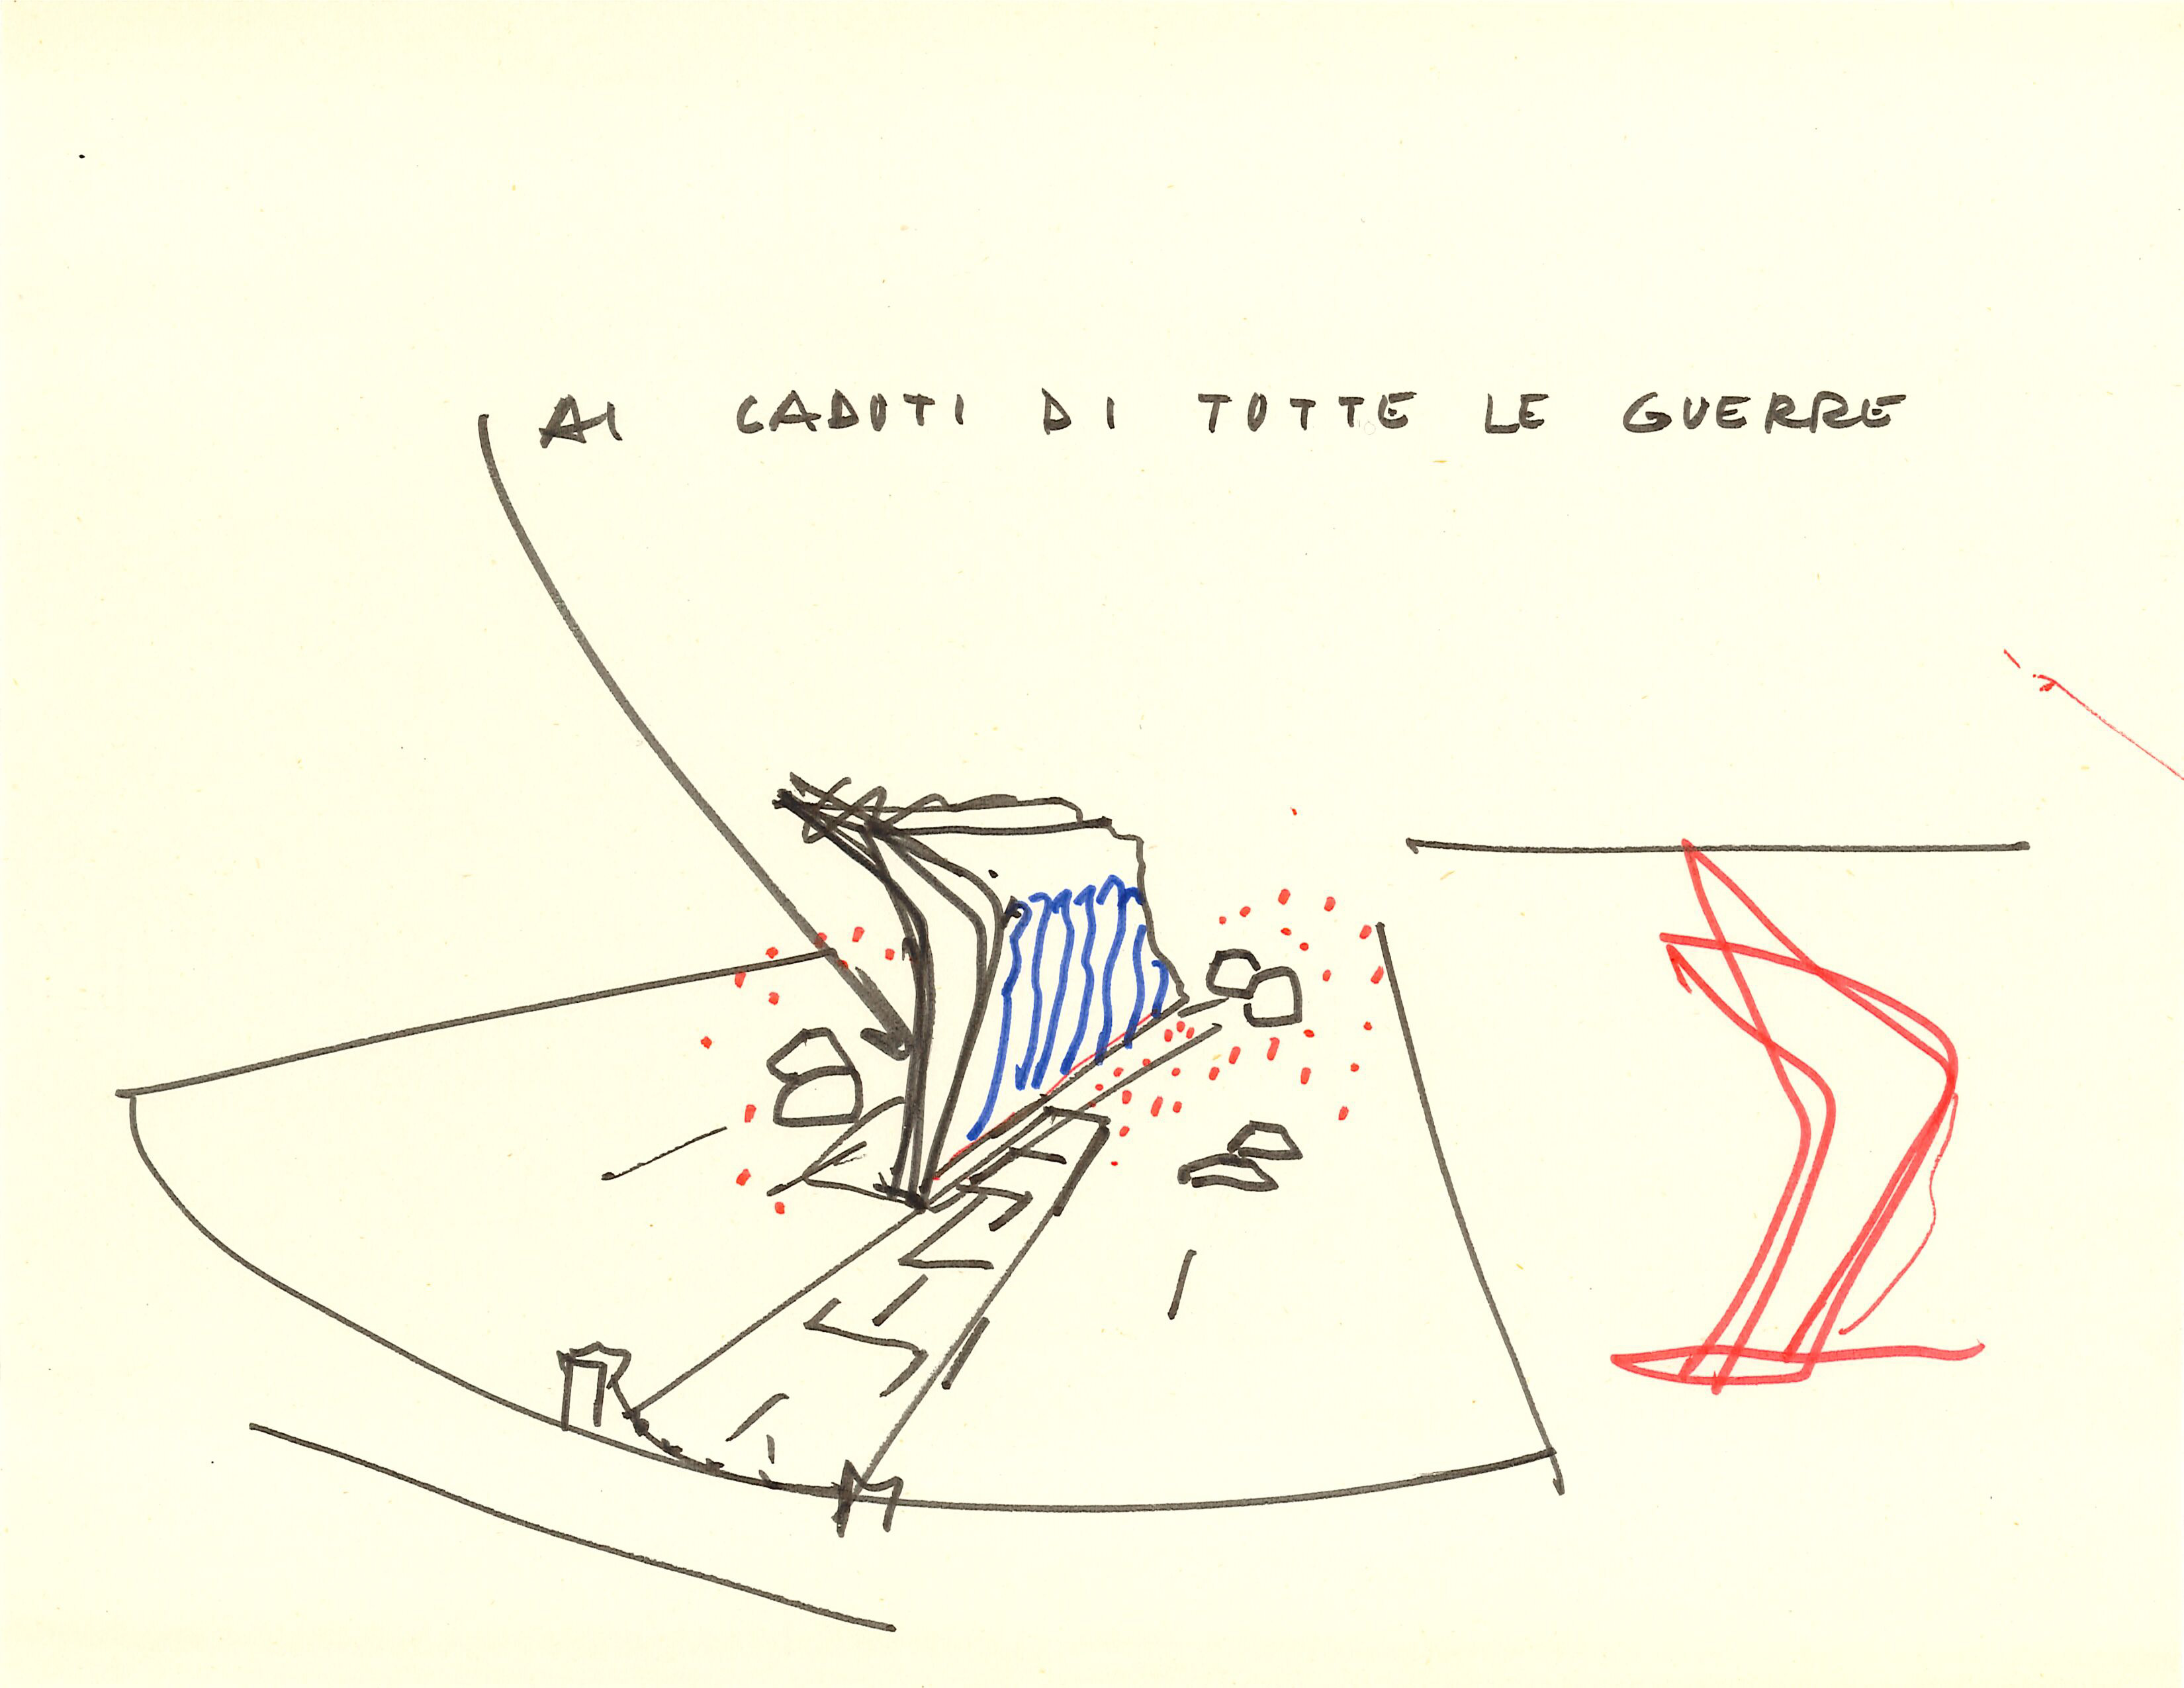 AI CADUTI DI TUTTE LE GUERRE